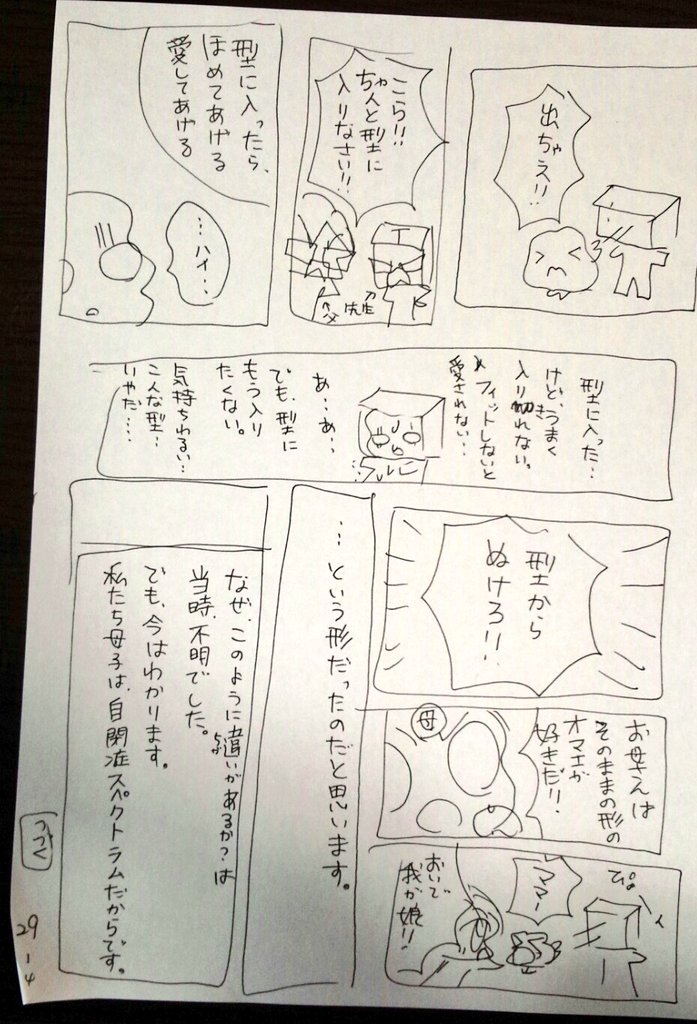 出ちゃえ!!
こら!!
ちゃんと型に
入りなさい!!
父
先生
型に入ったら、
ほめてあげる
愛してあげる
…ハイ…
型に入った…
けど、うまく
入り切れない。
き
フィットしないと
愛されない…
あ…あ…
でも、型に
もう入り
たくない。
気持ちわるい…
こんな型…
いやだ……
型から
ぬけろ!!
お母さんは
そのままの形の
オマエが
好きだ!!
母
ぴょーん
ママー
おいで
我が娘!!
…という形だったのだと思います。
なぜ、このように違いがあるか?は
ちが
当時、不明でした。
でも、今はわかります。
私たち母子は、自閉症スペクトラムだからです。
つづく
29-4